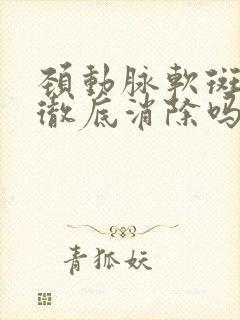 頚動脉軟斑
徹底消除吗
青狐妖